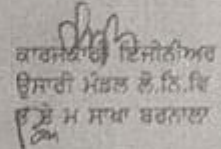 ਕਾਰਜਕਾਰੀ ਇੰਜੀਨੀਅਰ
ਉਸਾਰੀ ਮੰਡਲ ਲੋ.ਨਿ.ਵਿ
ਭ ਤੇ ਮ ਸਾਖਾ ਬਰਨਾਲਾ